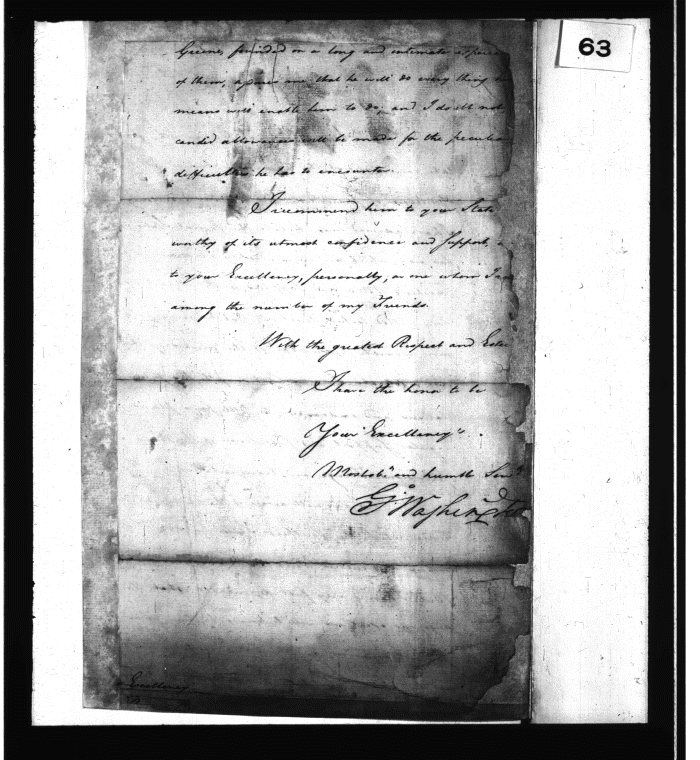 63
Greene, founded on a long and intimate experience
of them, assures me that he will do every thing his
means will enable him to do, and I doubt not
candid allowances will be made for the peculiar
difficulties he has to encounter.
I recommend him to your State
worthy of its utmost confidence and support,
to your Excellency, personally, as one whom I
among the number of my Friends.
With the greatest Respect and Este
I have the honor to be
Your Excellency's
Most obt and humble Servt
Go Washington
Excellency